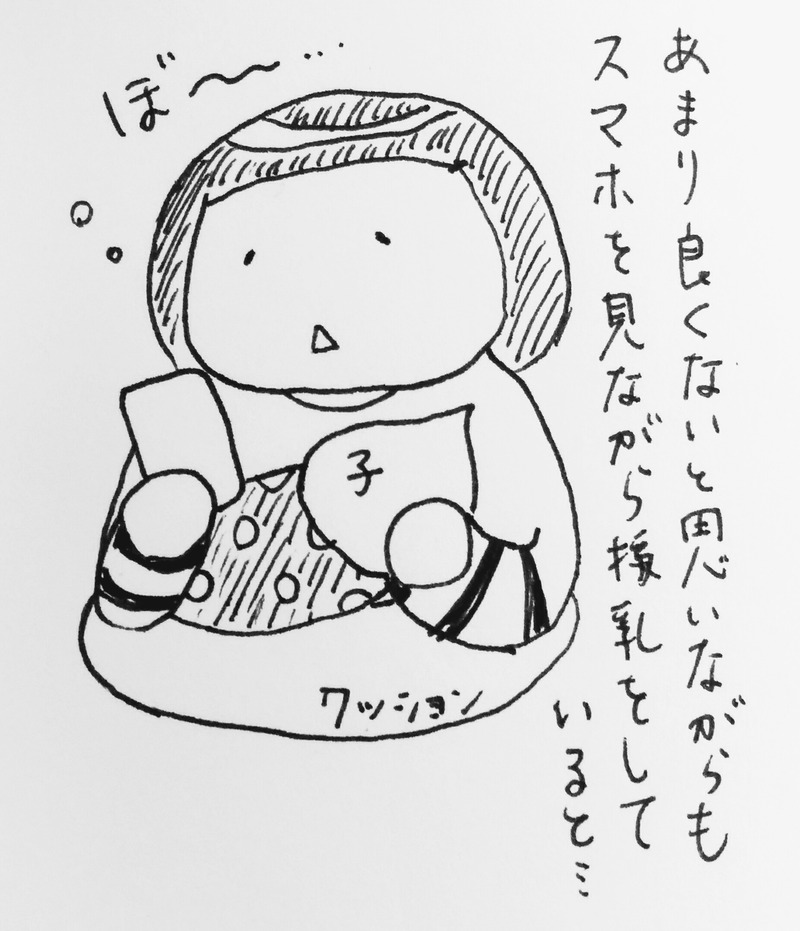 あまり良くないと思いながらも
スマホを見ながら授乳をして
いると…
ぼ〜…
子
クッション